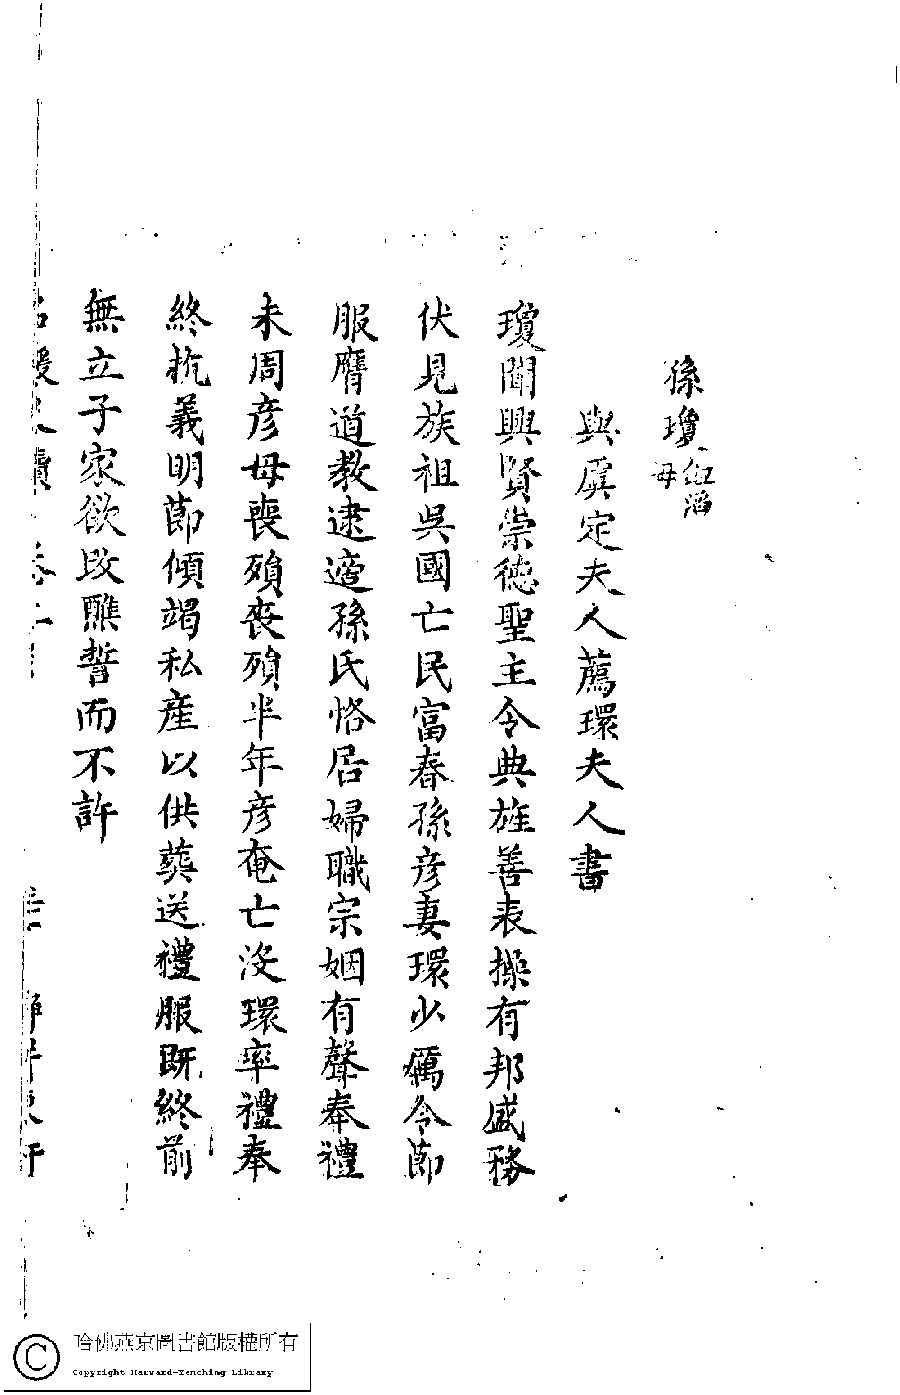 孫瓊 鈕滔母
與虞定夫人薦環夫人書
瓊聞興賢崇德聖主令典旌善表操有邦盛務
伏見族祖吳國亡民富春孫彥妻環少厲令節
服膺道教逮適孫氏恪居婦職宗姻有聲奉禮
未周彥母喪殞喪殞半年彥奄亡沒環率禮奉
終抗義明節傾竭私產以供葬送禮服既終前
無立子家欲改醮誓而不許
哈佛燕京圖書館版權所有
Copyright Harvard-Yenching Library